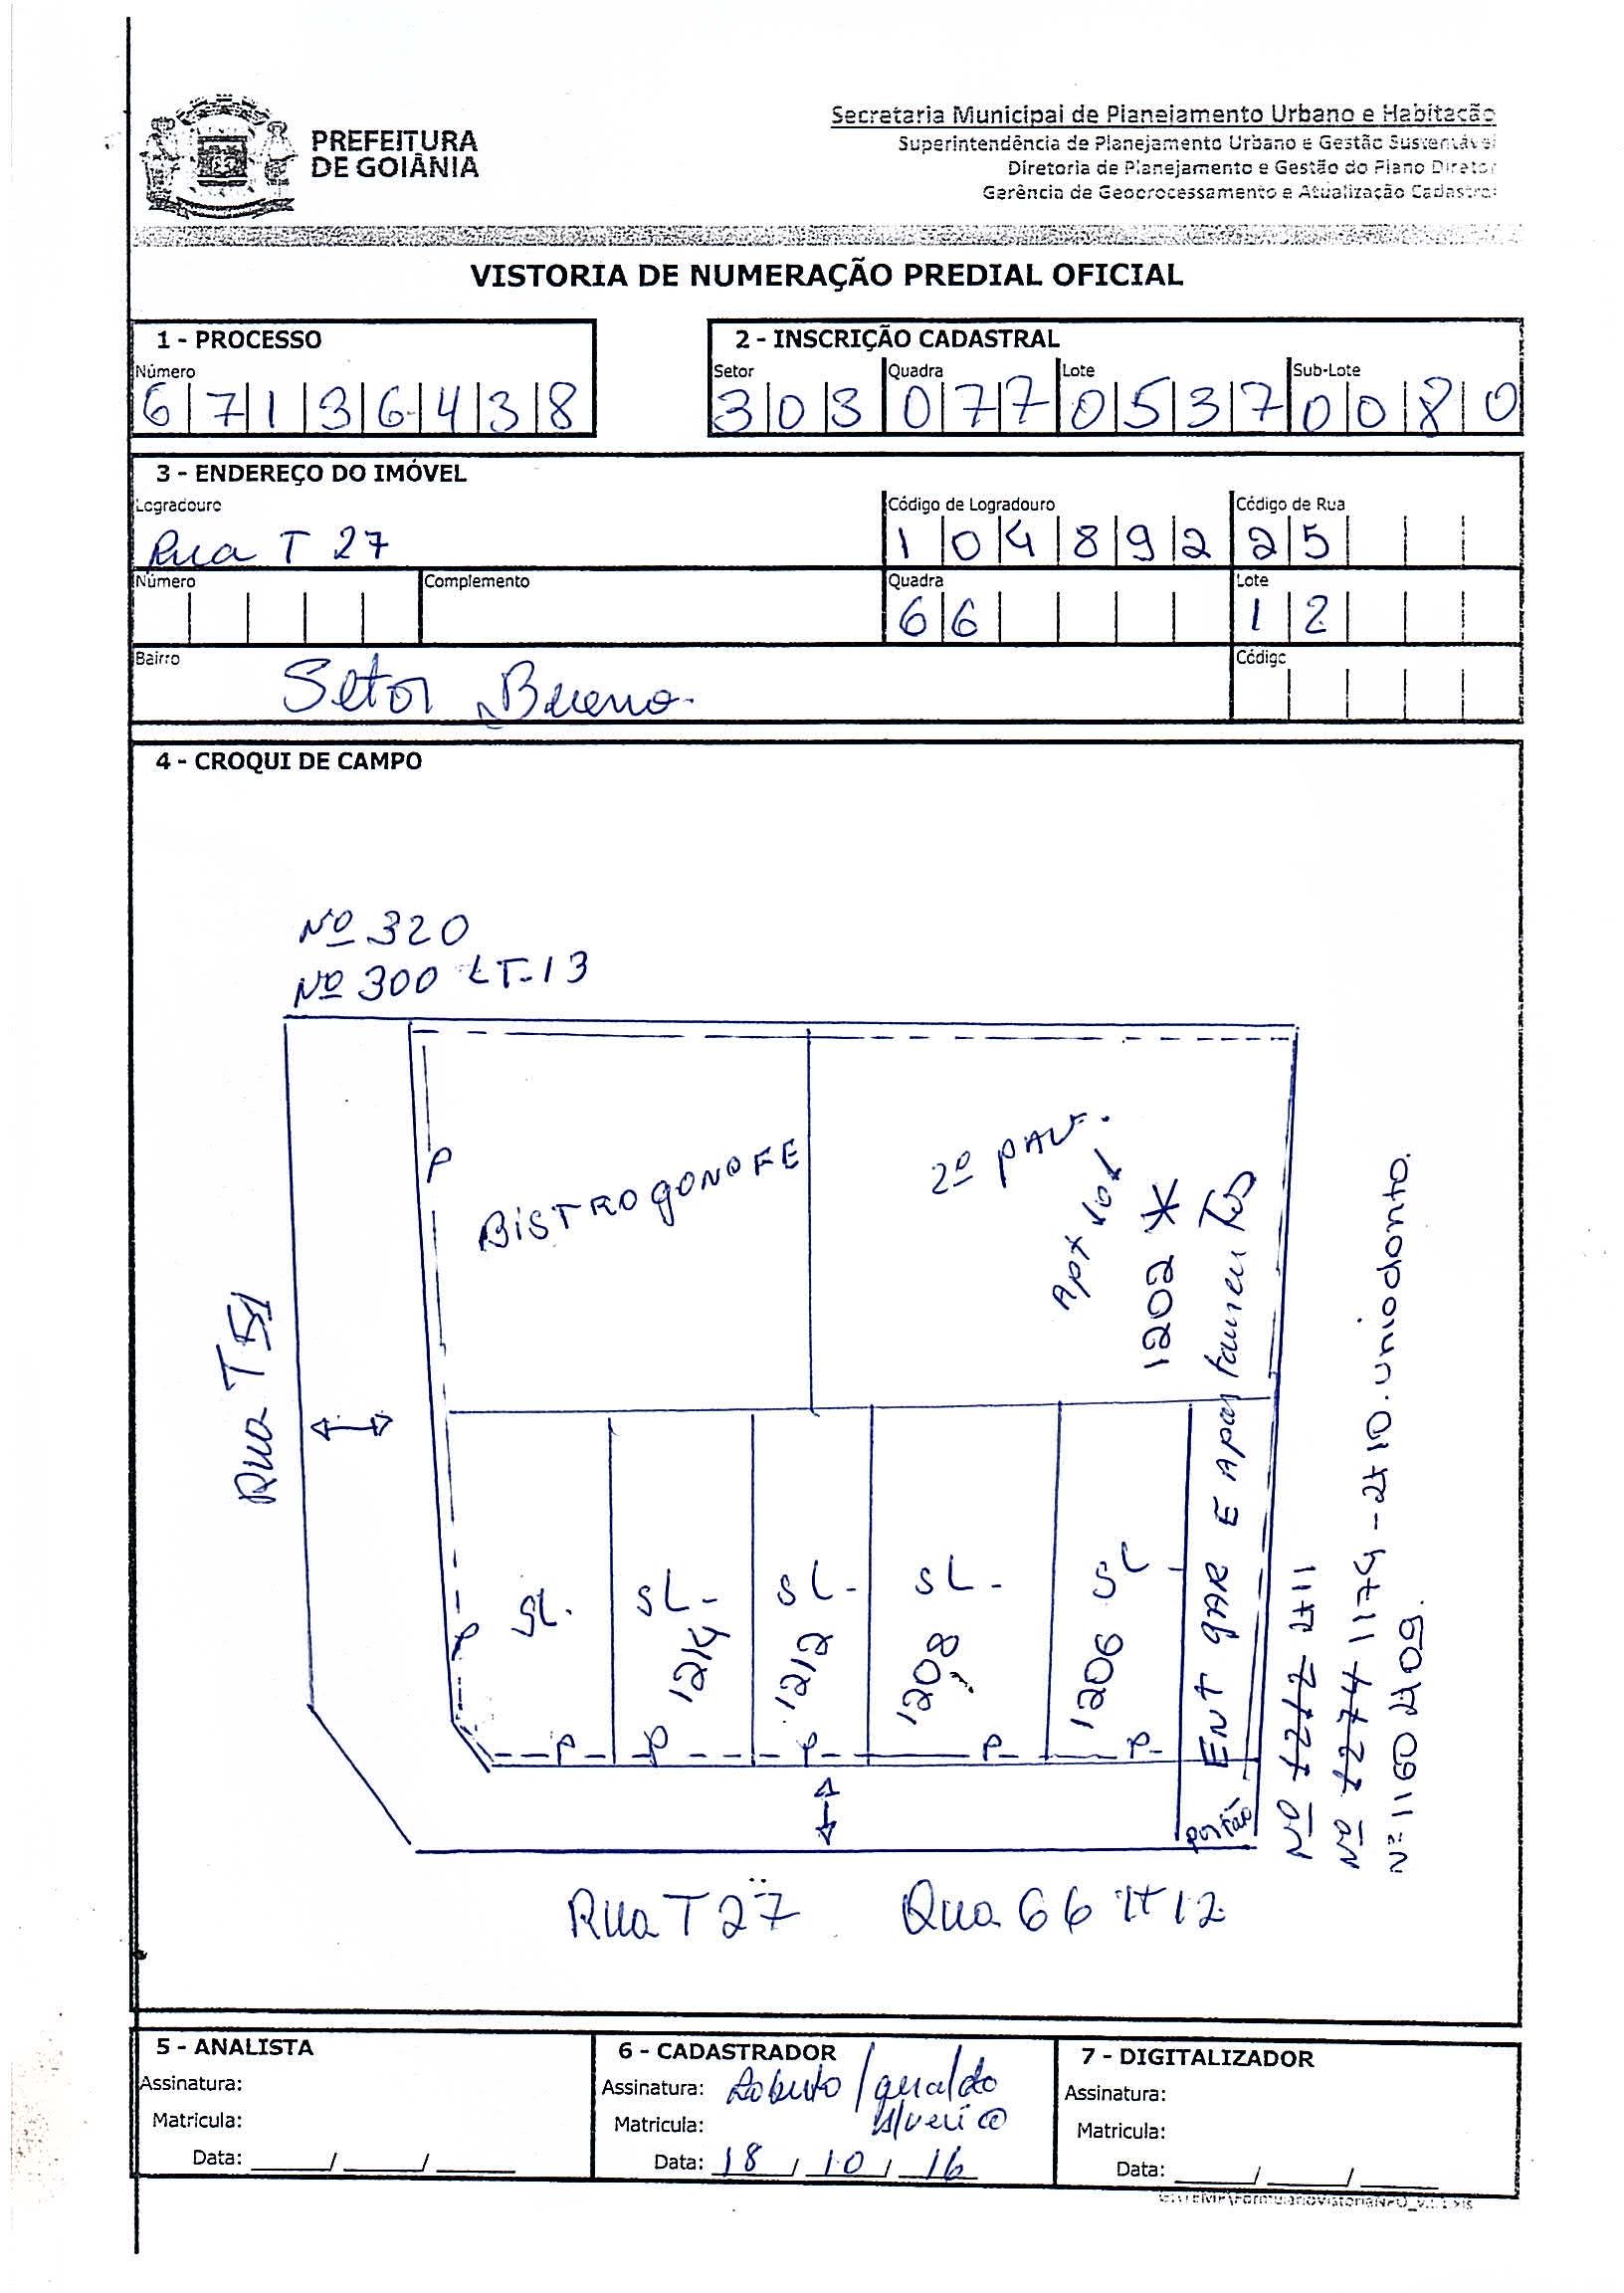 PREFEITURA
DE GOIÂNIA
Secretaria Municipal de Planejamento Urbano e Habitação
Superintendência de Planejamento Urbano e Gestão Sustentável
Diretoria de Planejamento e Gestão do Plano Diretor
Gerência de Geoprocessamento e Atualização Cadastral
VISTORIA DE NUMERAÇÃO PREDIAL OFICIAL
1 - PROCESSO
Número
67136438
2 - INSCRIÇÃO CADASTRAL
Setor Quadra Lote Sub-Lote
303 077 0537 0080
3 - ENDEREÇO DO IMÓVEL
Logradouro Código de Logradouro Código de Rua
Rua T 27 104892 25
Número Complemento Quadra Lote
66 12
Bairro Código
Setor Bueno
4 - CROQUI DE CAMPO
Nº 320
Nº 300 LT-13
P
BISTROGONOFE
2º PAV.
Apt 101
1202 *
Rua T 51
SL.
SL-
1214
SL-
1212
SL-
1208
SL
1206
ENT GAR E Apartamentos
Portão
P
P P P P P
Nº 1217 LT 11
Nº 1274 1174 - LT 10. uniodonto.
Nº 1160 LT 09.
Rua T 27 Qua 66 LT 12
5 - ANALISTA
Assinatura:
Matricula:
Data: ____/____/____
6 - CADASTRADOR
Assinatura: Roberto / Geraldo
Matricula:
Data: 18 / 10 / 16
7 - DIGITALIZADOR
Assinatura:
Matricula:
Data: ____/____/____